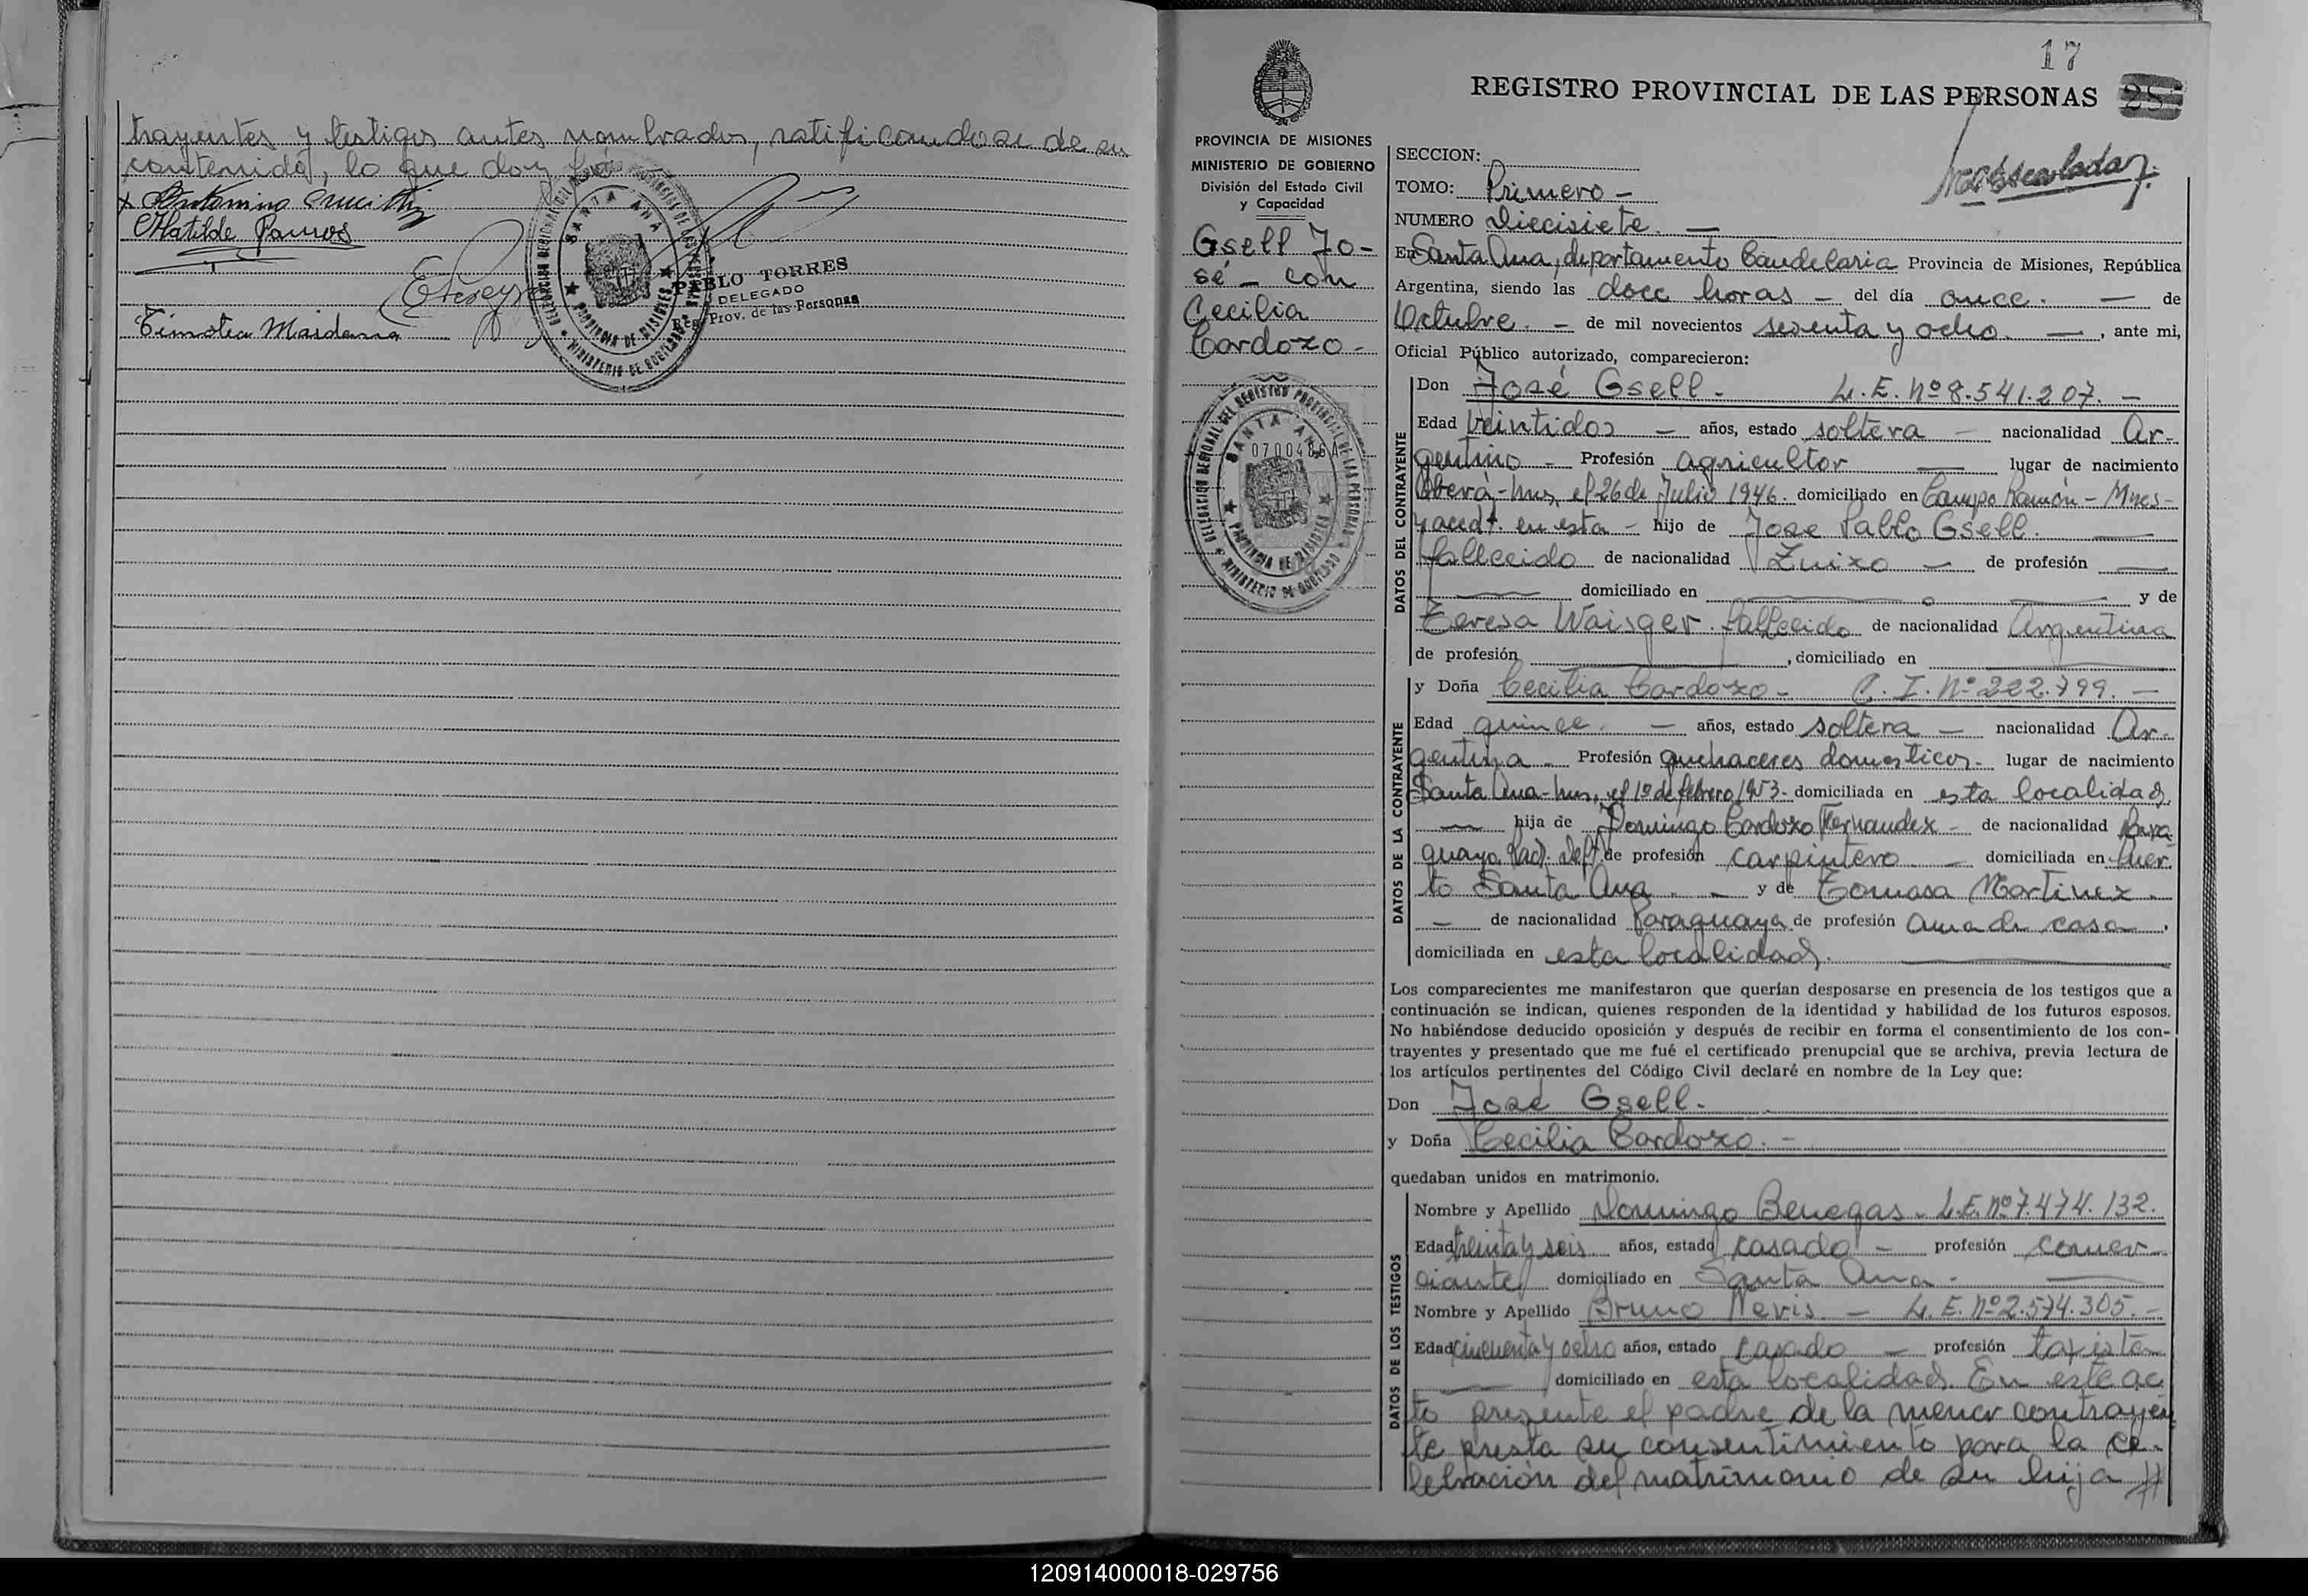 trayentes y testigos antes nombrados, ratificandose de su
contenido, lo que doy fé
Matilde Ramos
PABLO TORRES
DELEGADO
Reg. Prov. de las Personas
Timotea Maidana
SANTA ANA
PROVINCIA DE MISIONES
17
REGISTRO PROVINCIAL DE LAS PERSONAS
PROVINCIA DE MISIONES
MINISTERIO DE GOBIERNO
División del Estado Civil
y Capacidad
Gsell Jo-
sé - con
Cecilia
Cardozo-
DELEGACION REGIONAL DEL REGISTRO PROVINCIAL DE LAS PERSONAS
SANTA ANA
PROVINCIA DE MISIONES
MINISTERIO DE GOBIERNO
SECCION:
TOMO: Primero -
NUMERO Diecisiete. -
En Santa Ana, departamento Candelaria Provincia de Misiones, República
Argentina, siendo las doce horas - del día once. - de
Octubre. - de mil novecientos sesenta y ocho. - , ante mi,
Oficial Público autorizado, comparecieron:
DATOS DEL CONTRAYENTE
Don José Gsell - L.E. Nº 8.541.207. -
Edad Veintidos - años, estado soltero - nacionalidad Ar-
gentino - Profesión agricultor - lugar de nacimiento
Oberá-Mns, el 26 de Julio 1946. domiciliado en Campo Ramón - Mnes-
y acedt. en esta - hijo de Jose Pablo Gsell. -
fallecido de nacionalidad Zuizo - de profesión -
domiciliado en y de
Teresa Waisger. fallecido de nacionalidad Argentina
de profesión , domiciliado en
DATOS DE LA CONTRAYENTE
y Doña Cecilia Cardozo - C.I. Nº 222.799. -
Edad quince. - años, estado soltera - nacionalidad Ar-
gentina - Profesión quehaceres domesticos - lugar de nacimiento
Santa Ana-Mns, el 1º de febrero 1953 - domiciliada en esta localidad,
- hija de Domingo Cardozo Fernandez - de nacionalidad Para-
guaya Rad. Deft. de profesión carpintero - domiciliada en Puer-
to Santa Ana. - y de Tomasa Martinez -
- de nacionalidad Paraguaya de profesión Ama de casa.
domiciliada en esta localidad.
Los comparecientes me manifestaron que querían desposarse en presencia de los testigos que a
continuación se indican, quienes responden de la identidad y habilidad de los futuros esposos.
No habiéndose deducido oposición y después de recibir en forma el consentimiento de los con-
trayentes y presentado que me fué el certificado prenupcial que se archiva, previa lectura de
los artículos pertinentes del Código Civil declaré en nombre de la Ley que:
Don José Gsell.
y Doña Cecilia Cardozo. -
quedaban unidos en matrimonio.
DATOS DE LOS TESTIGOS
Nombre y Apellido Domingo Benegas - L.E. Nº 7.474.132.
Edad treinta y seis años, estado casado - profesión comer-
ciante domiciliado en Santa Ana - -
Nombre y Apellido Bruno Nevis. - L.E. Nº 2.574.305. -
Edad cincuenta y ocho años, estado casado - profesión taxista
domiciliado en esta localidad. En este ac
to presente el padre de la menor contrayen
te presta su consentimiento para la ce-
lebración del matrimonio de su hija //
120914000018-029756